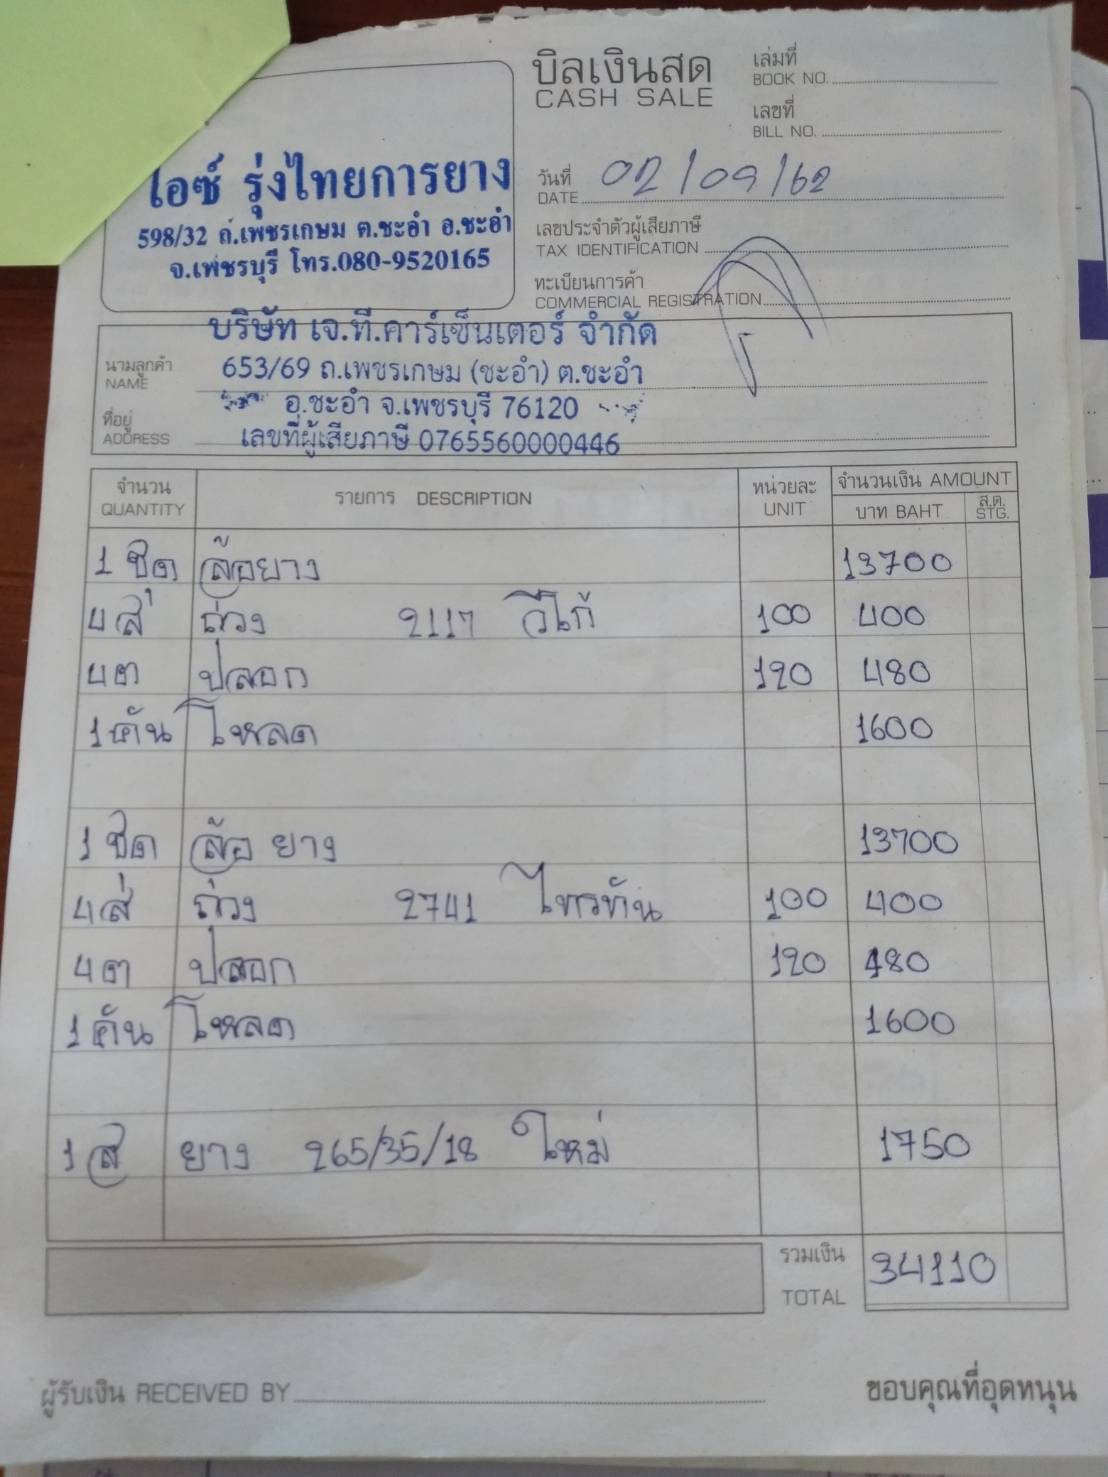 บิลเงินสด
CASH SALE
เล่มที่
BOOK NO.
เลขที่
BILL NO.
ไอซ์ รุ่งไทยการยาง
598/32 ถ.เพชรเกษม ต.ชะอำ อ.ชะอำ
จ.เพชรบุรี โทร.080-9520165
วันที่ 02/09/62
DATE
เลขประจำตัวผู้เสียภาษี
TAX IDENTIFICATION
ทะเบียนการค้า
COMMERCIAL REGISTRATION
บริษัท เจ.ที.คาร์เซ็นเตอร์ จำกัด
นามลูกค้า 653/69 ถ.เพชรเกษม (ชะอำ) ต.ชะอำ
NAME
อ.ชะอำ จ.เพชรบุรี 76120
ที่อยู่
ADDRESS เลขที่ผู้เสียภาษี 0765560000446
จำนวน รายการ DESCRIPTION หน่วยละ จำนวนเงิน AMOUNT
QUANTITY UNIT บาท BAHT ส.ต. STG.
1 ชุด ล้อยาง 13700
4 ล้อ ถ่วง 2117 วีโก้ 100 400
4 ตัว ปลอก 120 480
1 คัน โหลด 1600
1 ชุด ล้อ ยาง 13700
4 ล้อ ถ่วง 2741 ไททรัน 100 400
4 ตัว ปลอก 120 480
1 คัน โหลด 1600
1 ยาง 265/35/18 ใหม่ 1750
รวมเงิน 34110
TOTAL
ผู้รับเงิน RECEIVED BY
ขอบคุณที่อุดหนุน